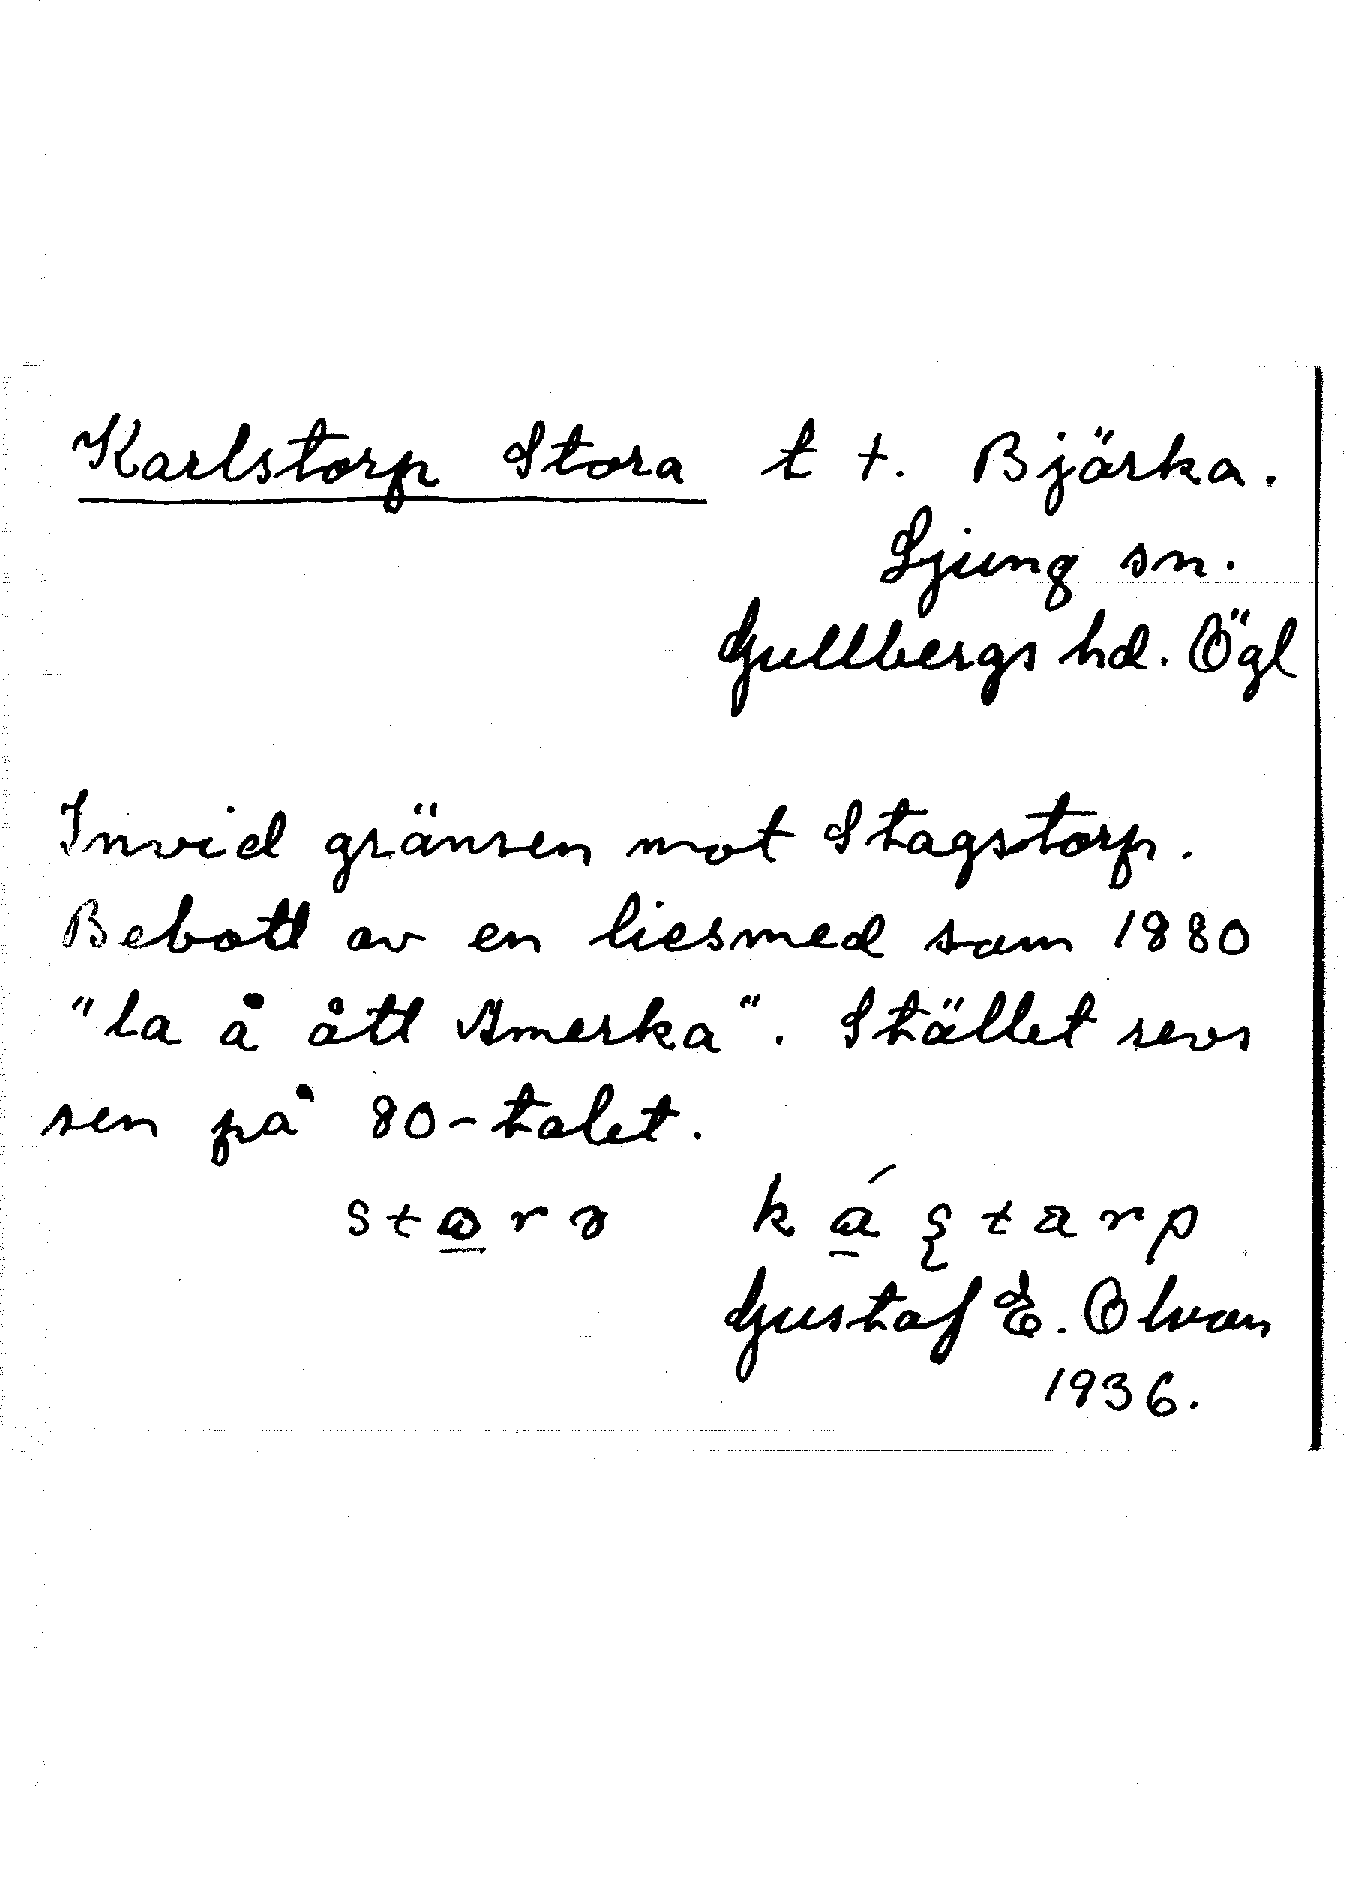 Karlstorp Stora t t. Bjärka.
Ljung sn.
Gullbergs hd. Ögl
Invid gränsen mot Stagstorp.
Bebott av en liesmed som 1880
"la å ått Amerka". Stället revs
sen på 80-talet.
storə káʂtarp
Gustaf E. Olvan
1936.